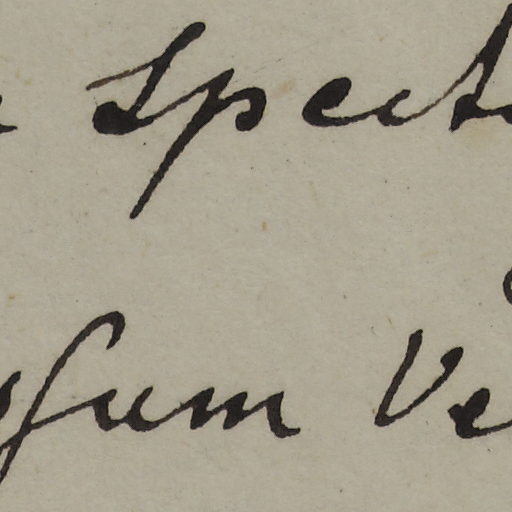 Spect
ssum Ve